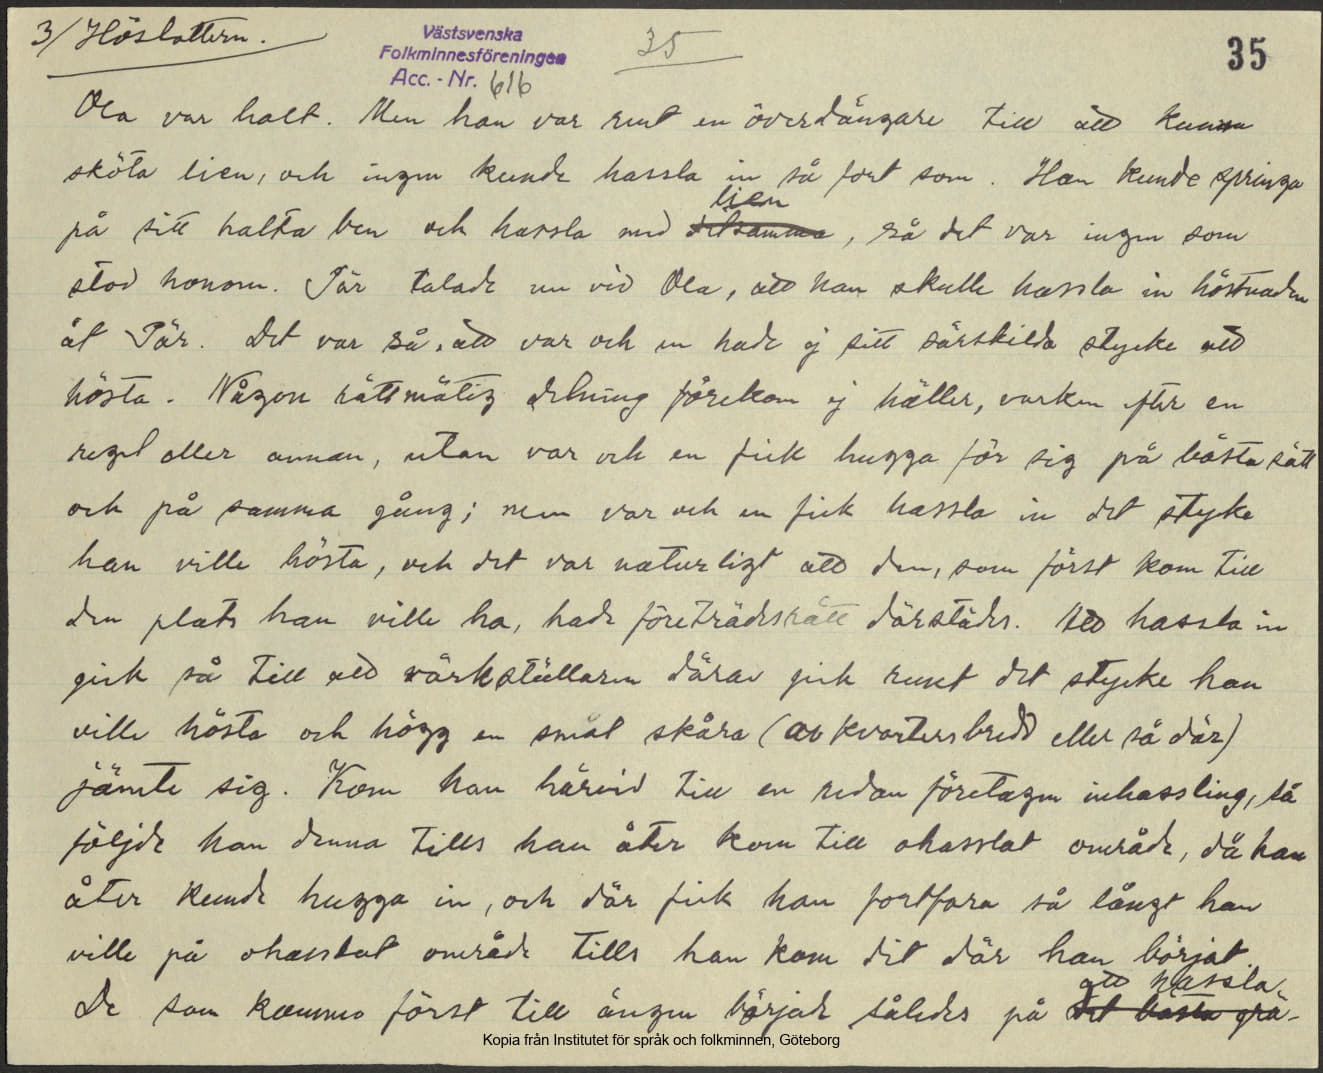 3/ Höslottern.
Västsvenska
Folkminnesföreningen
Acc. - Nr. 616
35
35
Ola var halt. Men han var rent en överdängare till att kunna
sköta lien, och ingen kunde hassla in så fort som. Han kunde springa
på sitt halta ben och hassla med detsamma lien, så det var ingen som
stod honom. Pär talade nu vid Ola, att han skulle hassla in höstnaden
åt Pär. Det var så, att var och en hade ej sitt särskilda stycke att
hösta. Någon rättmätig delning förekom ej häller, varken efter en
regel eller annan, utan var och en fick hugga för sig på bästa sätt
och på samma gång; men var och en fick hassla in det styke
han ville hösta, och det var naturligt att den, som först kom till
den plats han ville ha, hade företrädesrätt därstädes. Att hassla in
gick så till att värkställaren därav gick runt det stycke han
ville hösta och högg en smal skåra (av kvartersbredd eller så där)
jämte sig. Kom han härvid till en redan företagen inhassling, så
följde han denna tills han åter kom till ohasslat område, då han
åter kunde hugga in, och där fick han fortfara så långt han
ville på ohasslat område tills han kom dit där han börjat.
De som kommo först till ängen började således på det bästa grä- att hassla
Kopia från Institutet för språk och folkminnen, Göteborg